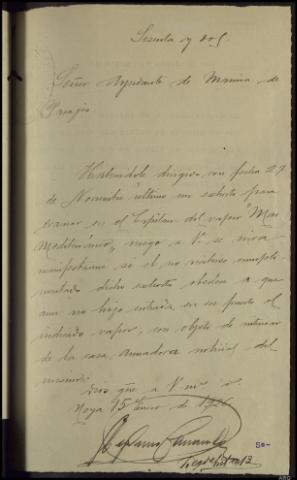 Sesenta y dos
Señor Ayudante de Marina de
Pasajes
Habiéndole dirigido con fecha 27
de Noviembre último un exhorto para
tramar en el Capitán del vapor "Mar
Mediterráneo", ruego a V. se sirva
manifestarme si el no recibir cumpli-
mentado dicho exhorto obedece a que
aun no haya entrado en ese puerto el
indicado vapor, con objeto de interesar
de la casa armadora noticias del
mismo.
Dios gue a V. ms. as.
Noya 15 Enero de 1926